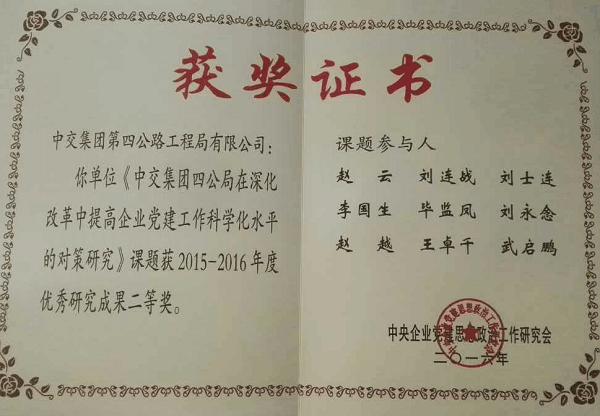 获奖证书
中交集团第四公路工程局有限公司：
你单位《中交集团四公局在深化
改革中提高企业党建工作科学化水平
的对策研究》课题获2015-2016年度
优秀研究成果二等奖。
课题参与人
赵 云 刘连战 刘士连
李国生 毕监凤 刘永念
赵 越 王卓千 武启鹏
中央企业党建思想政治工作研究会
二〇一六年